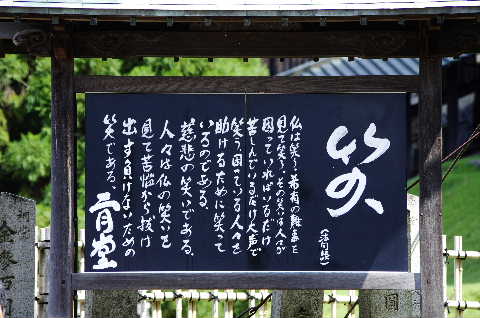 笑
仏は笑う、
見て笑う。その笑いは人々が
困っていればいるだけ
苦しんでいるだけ大声で
笑う、困っている人々を
助けるために笑って
いるのである。
慈悲の笑いである。
人々は仏の笑いを
見て苦悩から抜け
出す負けないための
笑である。